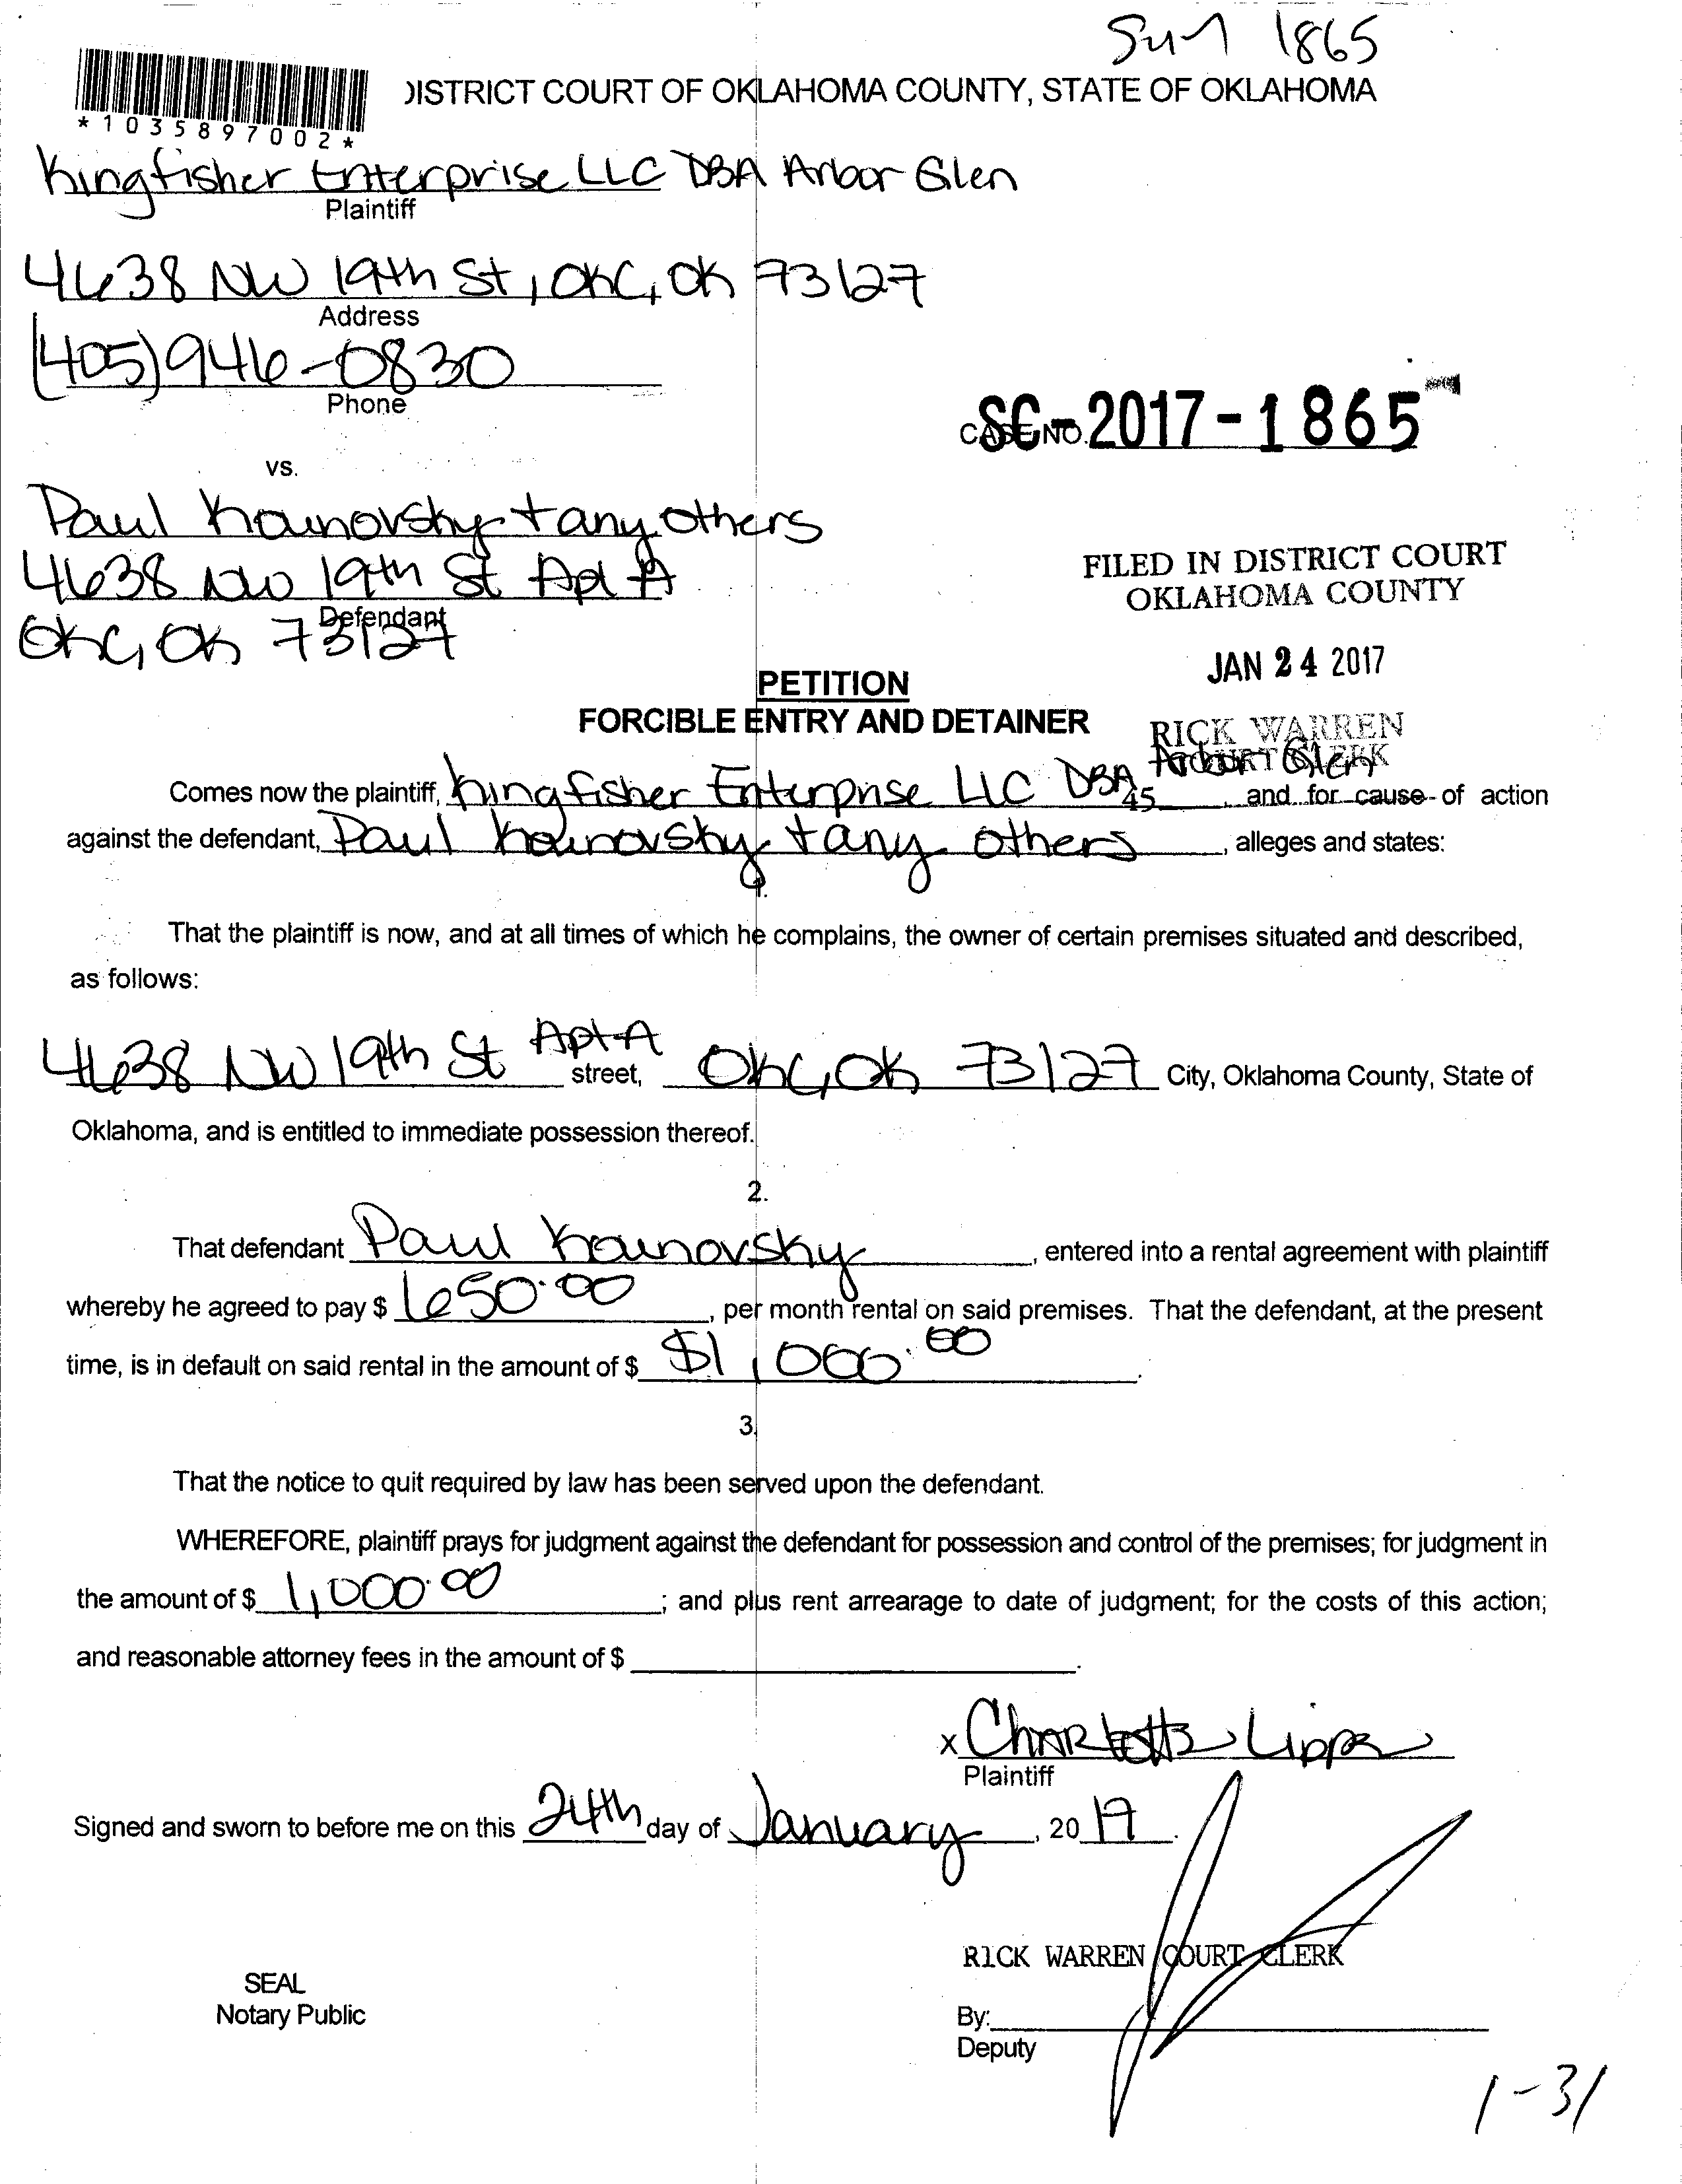 1865
DISTRICT COURT OF OKLAHOMA COUNTY, STATE OF OKLAHOMA
*1035897002*
Kingfisher Enterprise LLC DBA Arbor Glen
Plaintiff
4638 NW 19th St, OKC, OK 73127
Address
(405)946-0830
Phone
CASE NO. SC-2017-1865
vs.
Paul Kounovsky + any others
4638 NW 19th St Apt A
Defendant
OKC, OK 73127
FILED IN DISTRICT COURT
OKLAHOMA COUNTY
JAN 24 2017
RICK WARREN
COURT CLERK
45
PETITION
FORCIBLE ENTRY AND DETAINER
Comes now the plaintiff, Kingfisher Enterprise LLC DBA Arbor Glen, and for cause of action
against the defendant, Paul Kounovsky + any others, alleges and states:
1.
That the plaintiff is now, and at all times of which he complains, the owner of certain premises situated and described,
as follows:
4638 NW 19th St Apt A street, OKC, OK 73127 City, Oklahoma County, State of
Oklahoma, and is entitled to immediate possession thereof.
2.
That defendant Paul Kounovsky, entered into a rental agreement with plaintiff
whereby he agreed to pay $ 650.00, per month rental on said premises. That the defendant, at the present
time, is in default on said rental in the amount of $ $1,000.00.
3.
That the notice to quit required by law has been served upon the defendant.
WHEREFORE, plaintiff prays for judgment against the defendant for possession and control of the premises; for judgment in
the amount of $ 1,000.00; and plus rent arrearage to date of judgment; for the costs of this action;
and reasonable attorney fees in the amount of $
x Charlotte Lipps
Plaintiff
Signed and sworn to before me on this 24th day of January, 2017.
RICK WARREN COURT CLERK
SEAL
Notary Public
By:
Deputy
1-31